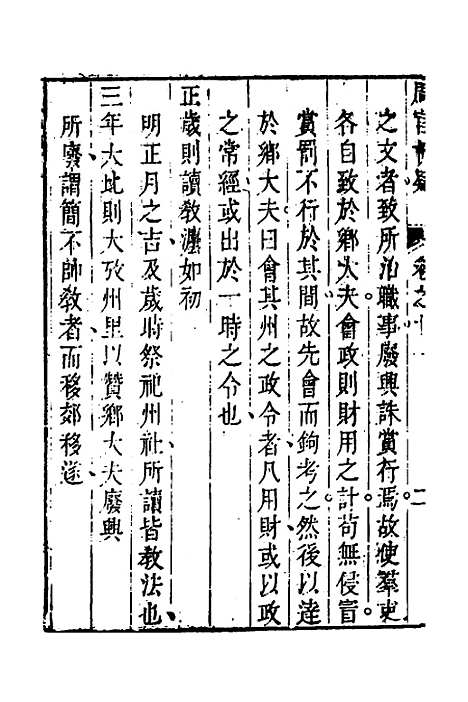 之文者致所治職事廢興誅賞行焉故使羣吏
各自致於鄉大夫會政則財用之計苟無侵盲
賞罰不行於其間故先會而鉤考之然後以達
於鄉大夫曰會其州之政令者凡用財或以政
之常經或出於一時之令也
正歲則讀教灋如初
明正月之吉及歲時祭祀州社所讀皆教法也
三年大比則大攷州里以贊鄉大夫廢興
所廢謂簡不帥教者而移郊移遂